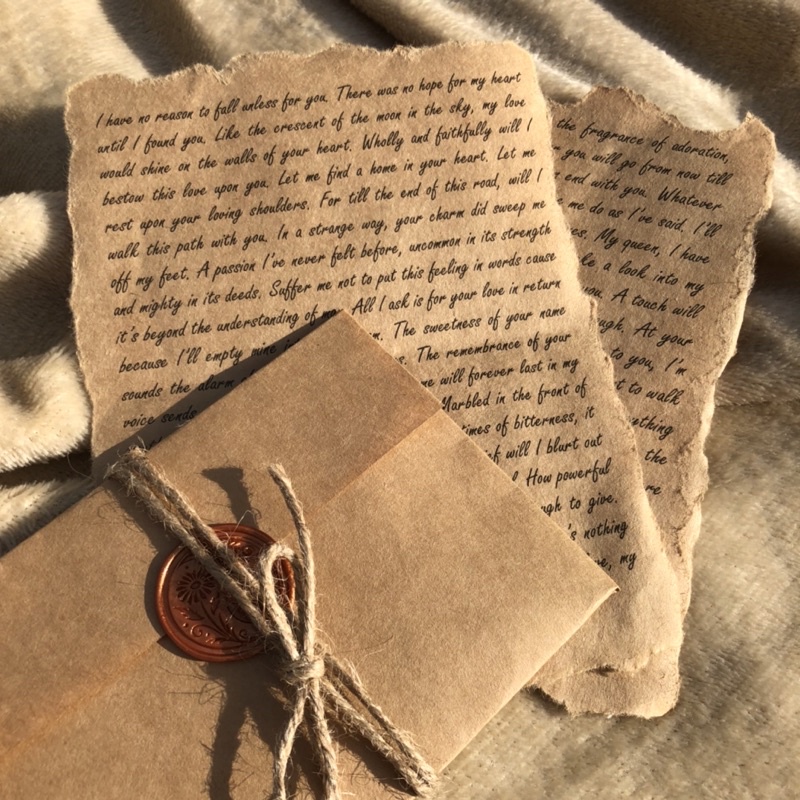 I have no reason to fall unless for you. There was no hope for my heart
until I found you. Like the crescent of the moon in the sky, my love
would shine on the walls of your heart. Wholly and faithfully will I
bestow this love upon you. Let me find a home in your heart. Let me
rest upon your loving shoulders. For till the end of this road, will I
walk this path with you. In a strange way, your charm did sweep me
off my feet. A passion I've never felt before, uncommon in its strength
and mighty in its deeds. Suffer me not to put this feeling in words cause
it's beyond the understanding of All I ask is for your love in return
because I'll empty mine The sweetness of your name
sounds the alarm of The remembrance of your
voice sends will forever last in my
Marbled in the front of
times of bitterness, it
will I blurt out
How powerful
to give.
nothing
my
the fragrance of adoration,
you will go from now till
end with you. Whatever
me do as I've said. I'll
My queen, I have
a look into my
you. A touch will
At your
to you, I'm
to walk
the